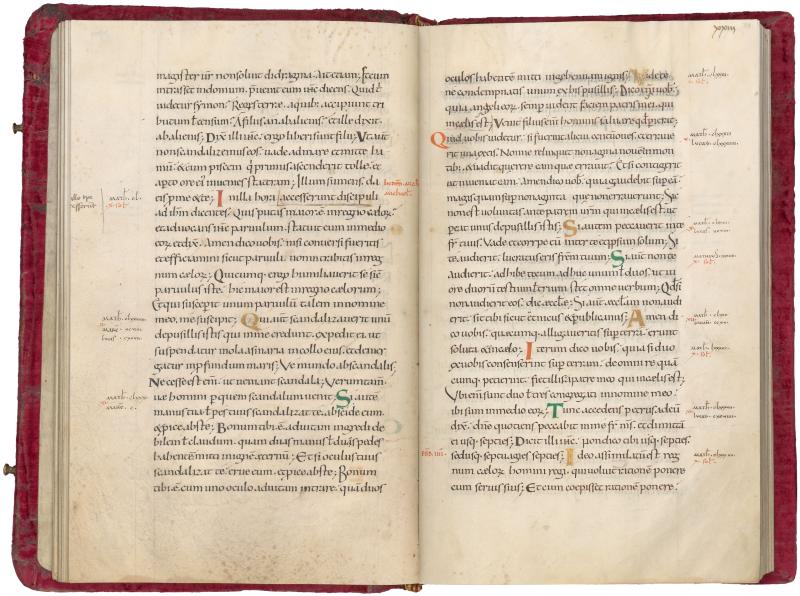 magister ur̄ non soluit didragma. Ait etiam. Et cum
intrasset in domum. p̄uenit eum ihc̄ dicens. Quid t̄
uidetur symon. Reges terrę. a quib; accipiunt tri
butum t̄ censum. A filiis an ab alienis; Et ille dixit.
ab alienis; Dix̄ illi ihc̄. ergo liberi sunt filii; Vt aut̄
non scandalizemus eos. uade ad mare et mitte ha
mū. & eum piscem q̄ primus ascenderit tolle. et
aperto ore ei; inuenies staterem; Illum sumens. da
eis p me & te; In illa hora accesserunt discipuli
ad ihm̄ dicentes. Quis putas maior ē in regno cęlor;
et aduocans ihc̄ paruulum. statuit eum in medio
eor; et dix̄. Amen dico uobis. nisi conuersi fueritis
et efficiamini sicut paruuli. non intrabitis in reg
num cęlor; Quicumq; ergo humiliauerit se sic̄
paruulus iste. hic maior est in regno cęlorum;
Et qui susceperit unum paruulū talem in nomine
meo. me suscipit; Qui aut̄ scandalizauerit unū
de pusillis istis qui in me credunt. expedit ei ut
suspendatur mola asinaria in collo eius. et demer
gatur in pfundum maris; Ve mundo ab scandalis;
Necesse est eni; ut ueniant scandala; Verumtam̄
uae homini p quem scandalum uenit; Si aut̄
manus tua t̄ pes tuus scandalizat te. abscide eum.
& p̄ice abs te; Bonum tibi ē. ad uitam ingredi de
bilem t̄ claudum. quam duas manus t̄ duās pedes
habentem mitti in ignē aeternū; Et si oculus tuus
scandalizat te. erue eum. & p̄ice abs te; Bonum
tibi ē. cum uno oculo. ad uitam intrare. quā duos
xxxiiii
oculos habentē mitti in gehennam ignis; Videte
ne condemnatis unum ex his pusillis; Dico eni; uob;
quia angeli eor; semp uident faciem patris mei. qui
in cęlis est; Venit filius eni; hominis saluare qd̄ perierat;
Quid uobis uidetur. si fuerint alicui centum oues. et erraue
rit una ex eis. Nonne relinquit nonaginta nouem in mon
tib; & uadit quęrere eam que errauit. Et si contigerit
ut inueniat eam. Amen dico uob; quia gaudebit sup eā
magis quam sup nonaginta quę non errauerunt; Sic
non est uoluntas ante patrem urm̄ qui in cęlis est. ut
pereat unus de pusillis istis; Si autem peccauerit in te
fr̄ tuus. Vade et corripe eū inter te et ipsum solum; Si
te audierit. lucratus eris frem̄ tuum; Si aut̄ non te
audierit. adhibe tecum adhuc unum t̄ duos. ut in
ore duorū testium t̄ trium stet omne uerbum; Qd̄ si
non audierit eos. dic ęcclę; Si aut̄ ęcclam̄ non audi
erit. sit tibi sicut ethnicus & publicanus; Amen di
co uobis. quęcumq; alligaueritis sup terrā. erunt
soluta & in cęlo; Iterum dico uobis. quia si duo
ex uobis consenserint sup terram. de omni re quā
cumq; petierint. fiet illis a patre meo qui in cęlis est;
Vbi eni; sunt duo t̄ tres congregati in nomine meo.
ibi sum in medio eor; Tunc accedens petrus ad eū
dix̄. dnē quotiens peccabit in me fr̄ ms̄. et dimittā
ei usq; septies; Dicit illi ihc̄. non dico tibi usq; septies.
sed usq; septuagies septies; Ideo assimilatū est reg
num cęlor; homini regi. qui uoluit rationē ponere
cum seruis suis; Et cum coepisset rationē ponere.